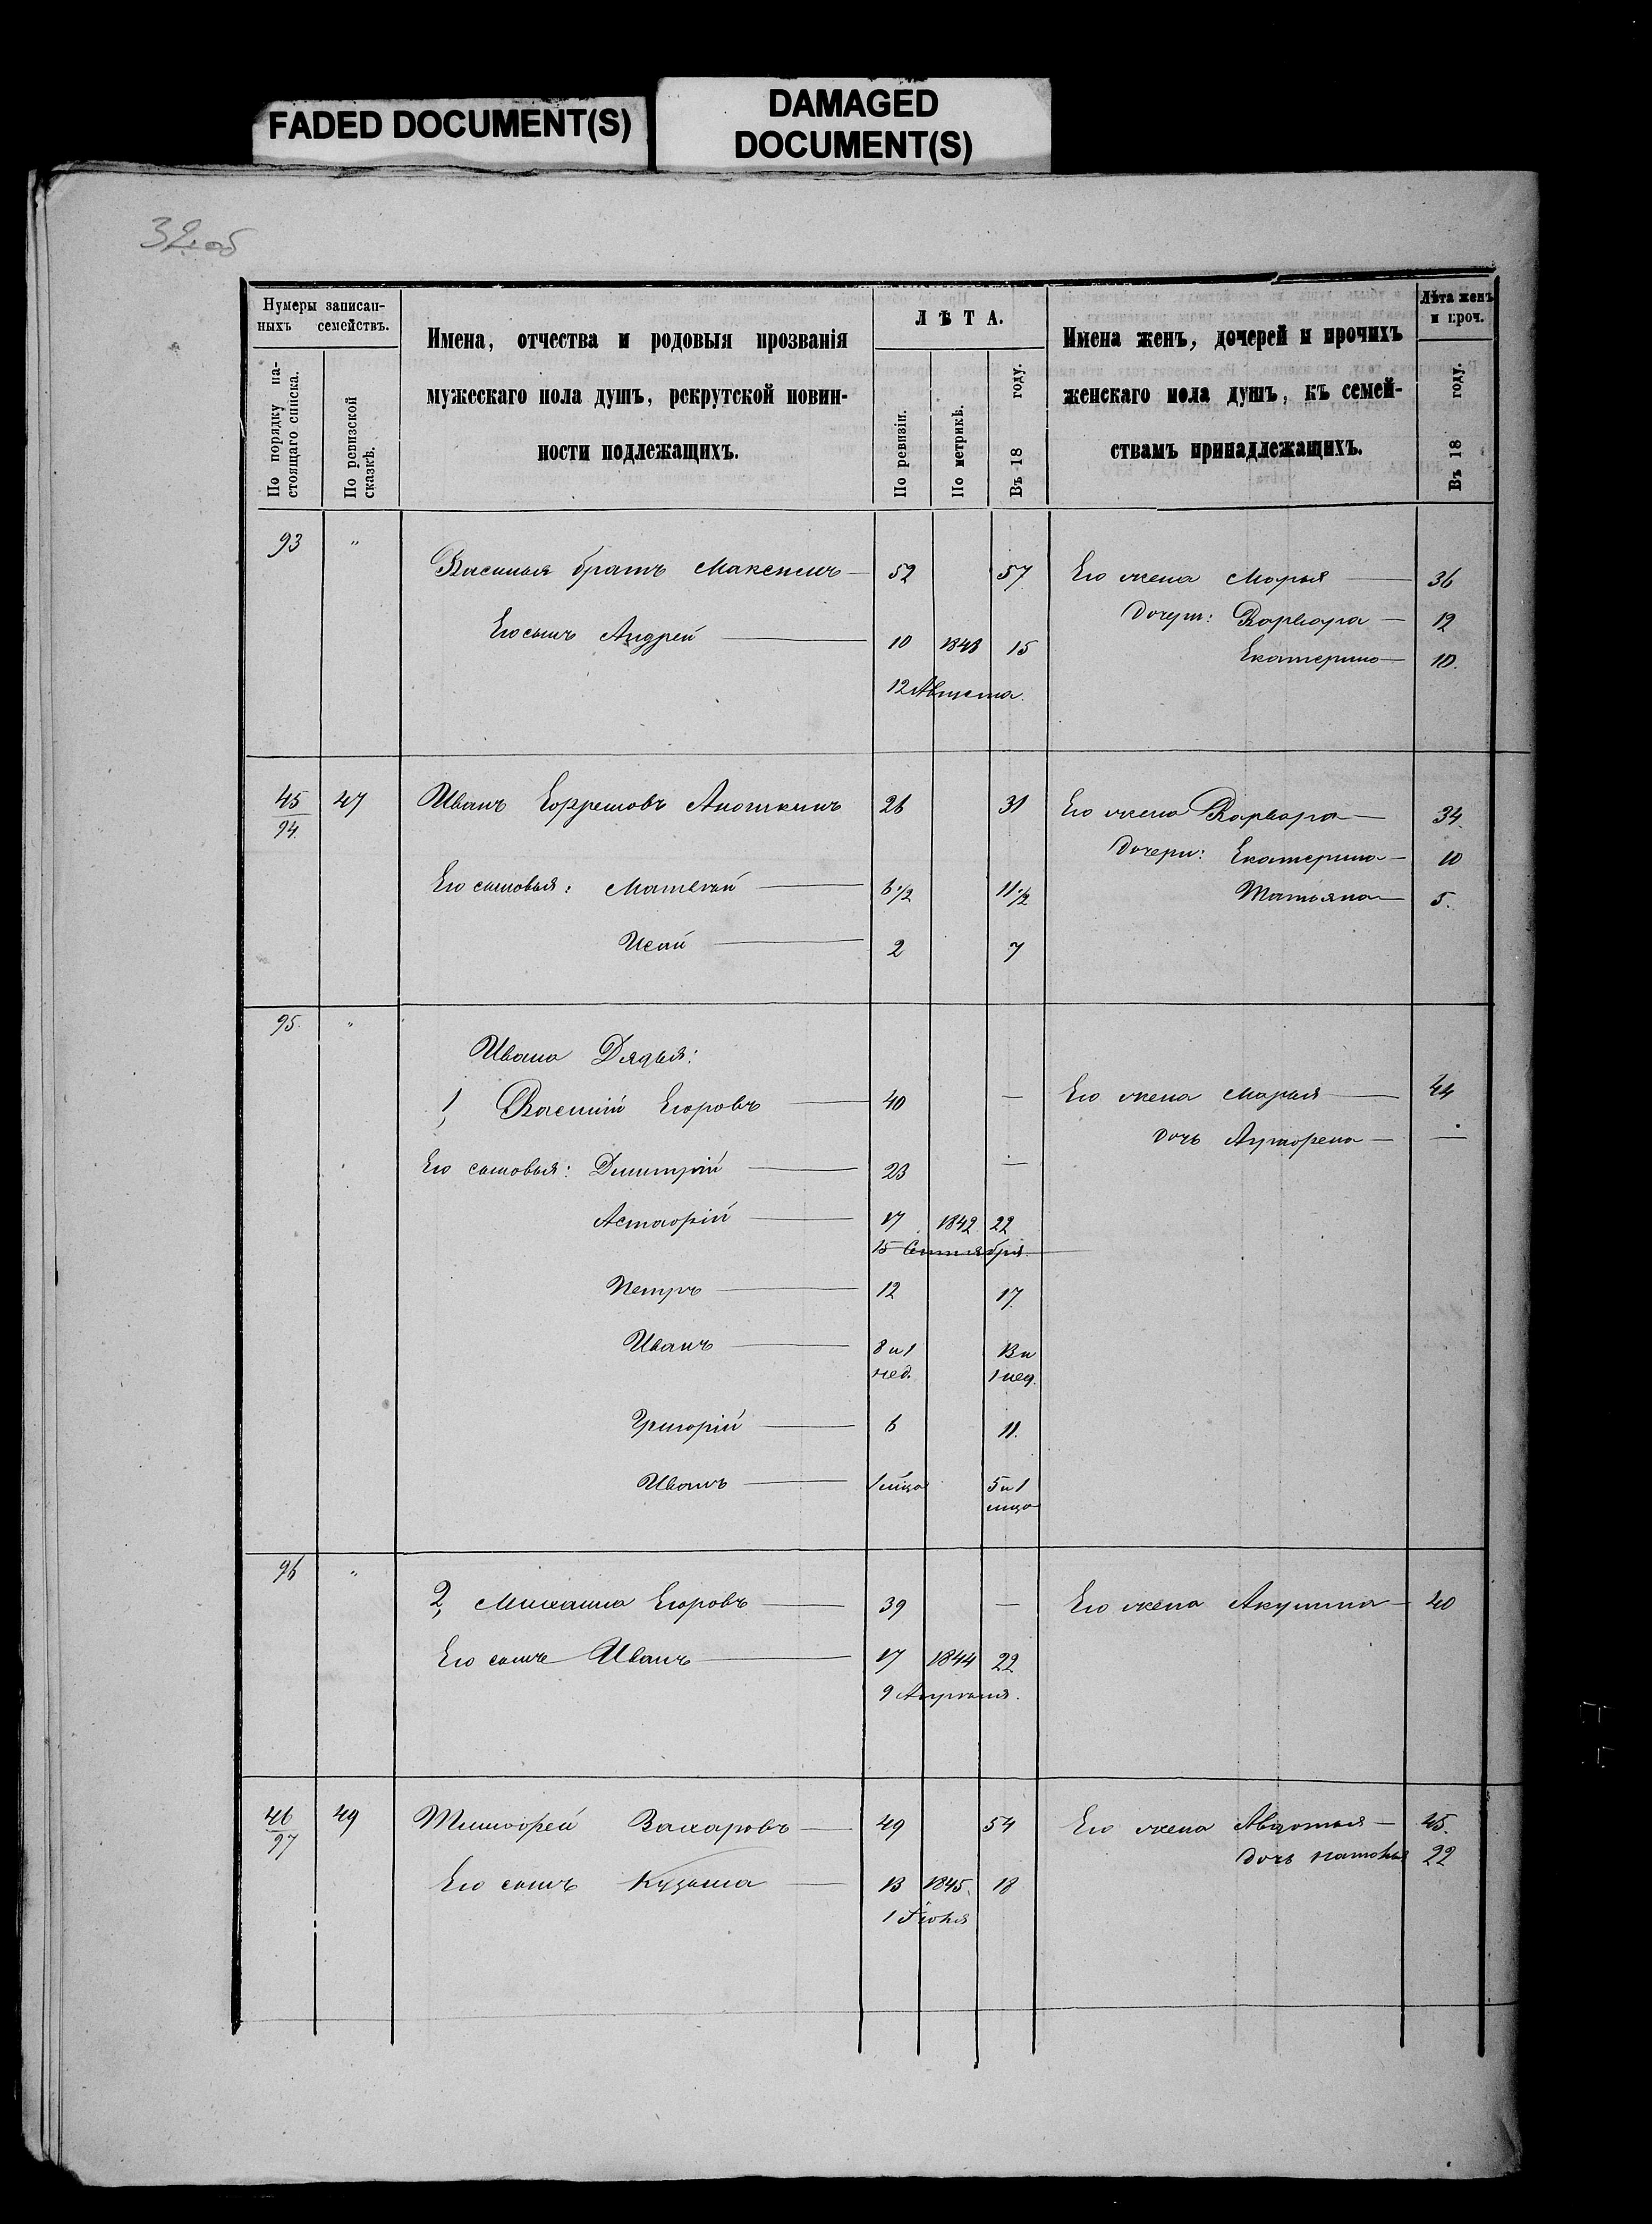 FADED DOCUMENT(S)
DAMAGED
DOCUMENT(S)
32 об
Нумеры записан-
ныхъ семействъ.
По порядку на-
стоящаго списка.
По ревизской
сказкѣ.
Имена, отчества и родовыя прозванія
мужескаго пола душъ, рекрутской повин-
ности подлежащихъ.
ЛѢТА.
По ревизіи.
По метрикѣ.
Въ 18 году.
Имена женъ, дочерей и прочихъ
женскаго пола душъ, къ семей-
ствамъ принадлежащихъ.
Лѣта женъ
и проч.
Въ 18 году.
93 " Василья братъ Максимъ 52 57 Его жена Марья 36
Дочери: Варвара 12
Его сынъ Андрей 10 1848 15
Екатерина 10.
12 Августа.
45/94. 47 Иванъ Ефремовъ Аношкинъ 26 31 Его жена Варвара 34.
Дочери: Екатерина 10
Его сыновья: Матвѣй 6 1/2 11 1/2
Татьяна 5.
Исай 2 7
95. "
Ивана Дядья:
1, Василій Егоровъ 40 — Его жена Марья 44
Дочь —
Его сыновья: Дмитрій 23 —
Астафій 17 1842 22
15 Сентября.
Петръ 12 17.
Иванъ 8 и 1 нед. 13 и 1 нед.
Григорій 6 11.
Иванъ 1 мѣца 5 и 1 мѣца
96 " 2, Михаила Егоровъ 39 — Его жена Акулина 40
Его сынъ Иванъ 17 1844 22
9 Апрѣля.
46/97 49 Тимофей Захаровъ 49 54 Его жена Авдотья 45.
Дочь Наталья 22
Его сынъ Кузьма 13 1845. 18
1 Іюня